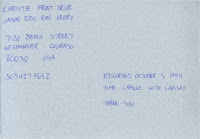 CHRISTIE FRONT DRIVE
JASON ERIC RON KERRY
7120 BEACH STREET
WESTMINSTER COLORADO
80030 USA
303 427 FURZ
RECORDED OCTOBER 5 1994
TIME CAPSULE WITH
THANK YOU